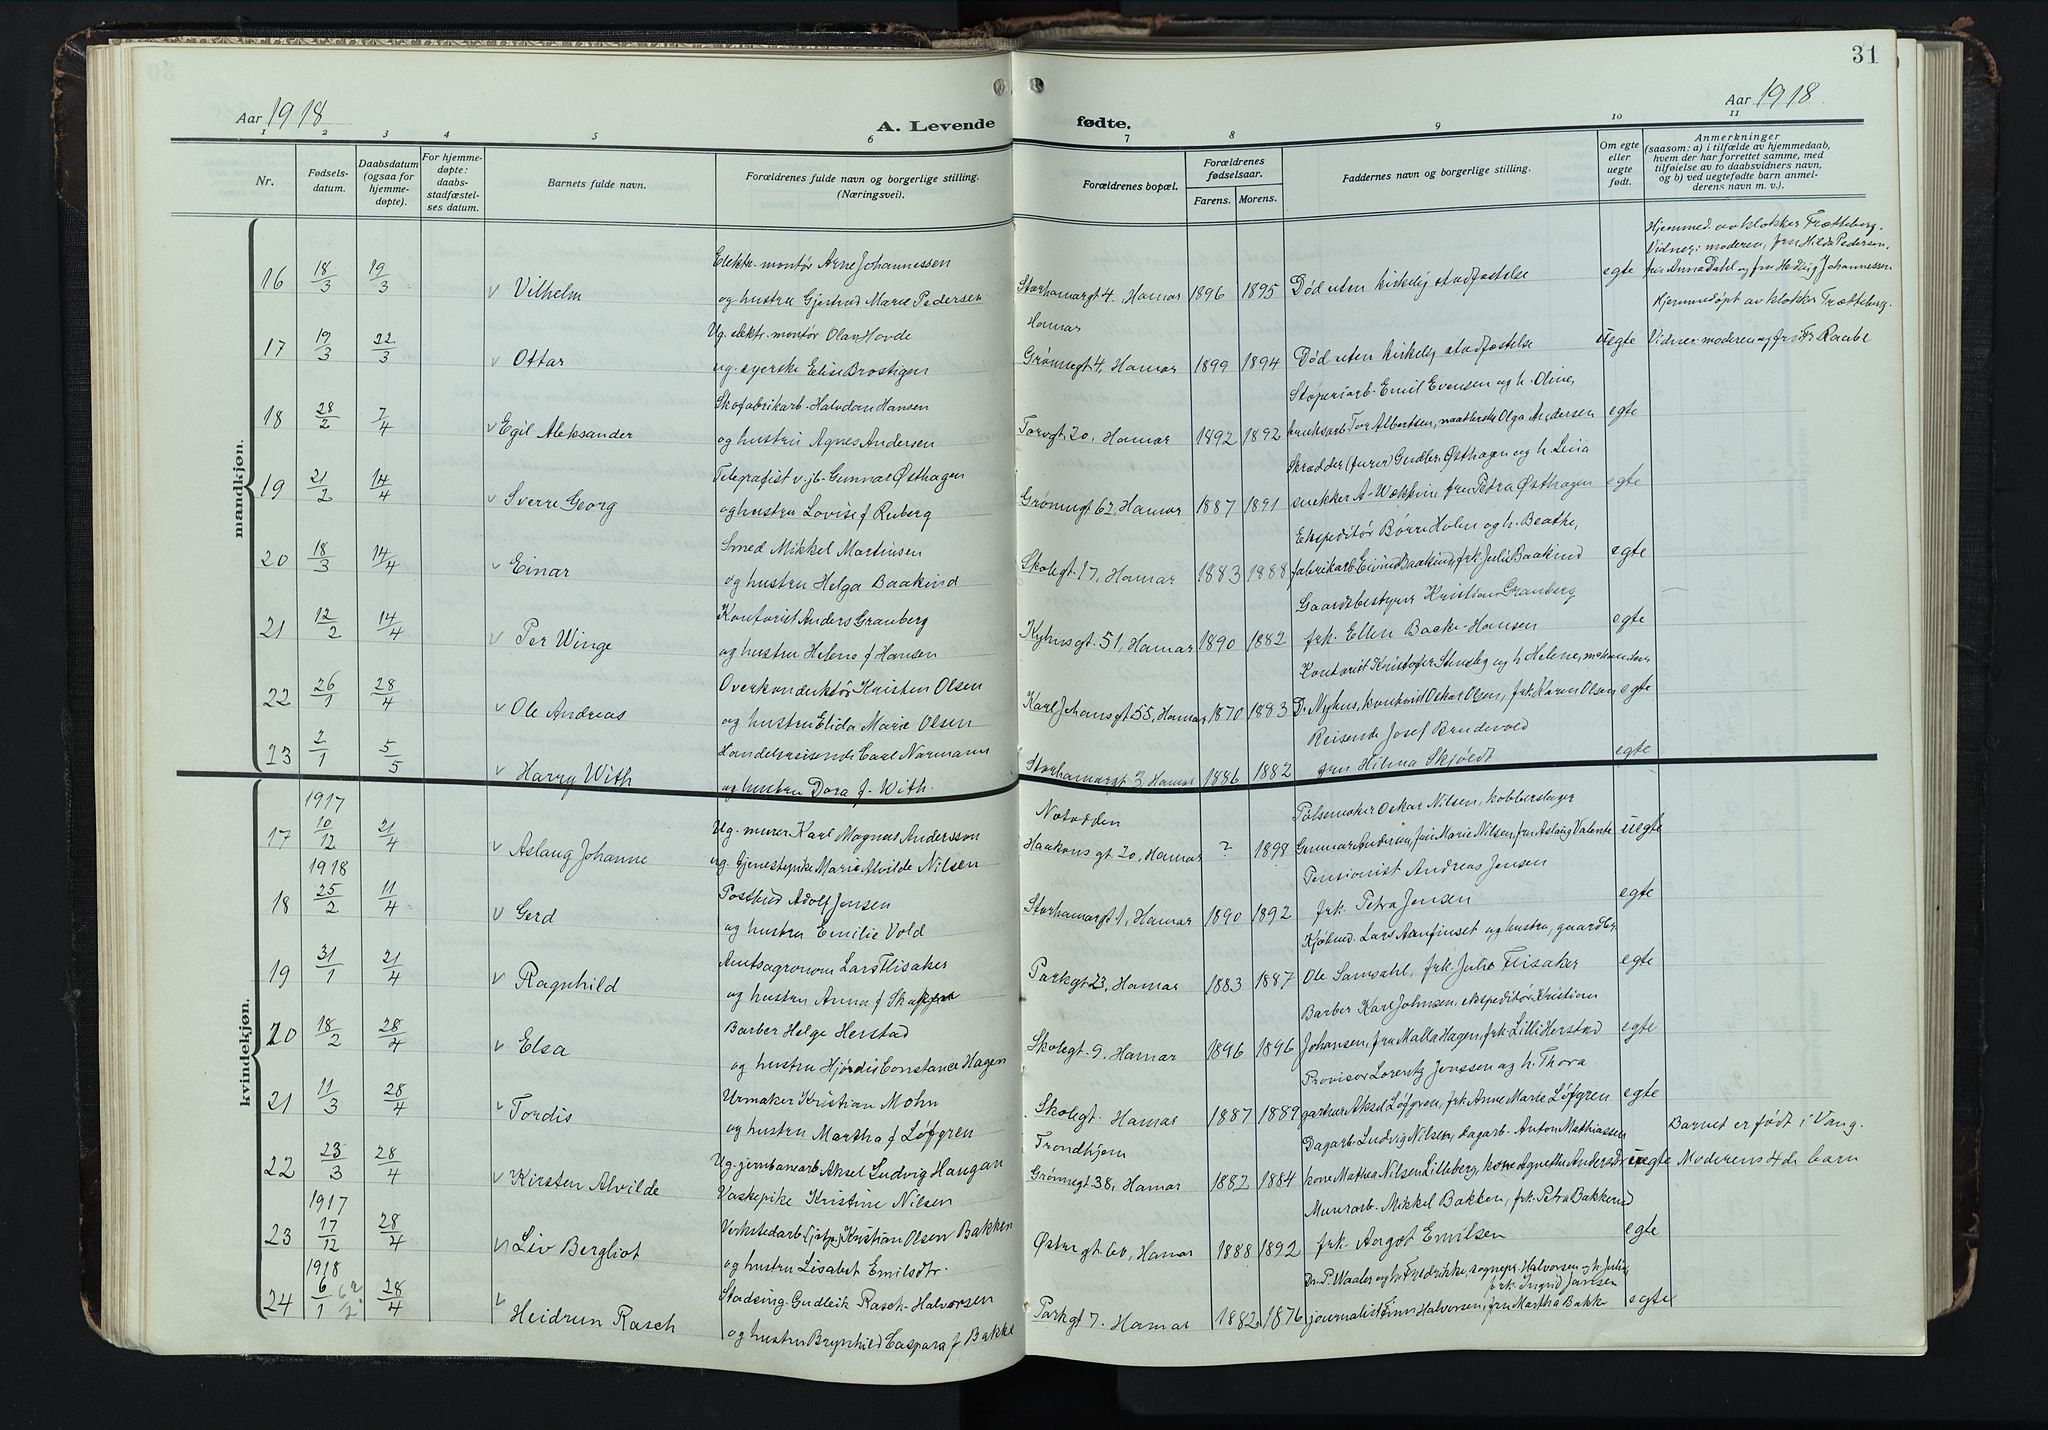 31
Aar 1918
Aar 1918
A. Levende fødte.
1 2 3 4 5 6 7 8 9 10 11
Nr.
Fødsels-
datum.
Daabsdatum
(ogsaa for
hjemme-
døpte).
For hjemme-
døpte:
daabs-
stadfæstel-
ses datum.
Barnets fulde navn.
Forældrenes fulde navn og borgerlige stilling.
(Næringsvei).
Forældrenes bopæl.
Forældrenes
fødselsaar.
Farens. Morens.
Faddernes navn og borgerlige stilling.
Om egte
eller
uegte
født.
Anmerkninger
(saasom: a) i tilfælde av hjemmedaab,
hvem der har forrettet samme, med
tilføielse av to daabsvidners navn,
og b) ved uegtefødte barn anmel-
derens navn m. v.).
mandkjøn.
Hjemmed. av klokker Frætteberg.
Vidner: moderen, fru Hilda Pedersen,
Elektr. montør Arne Johannessen
16 18/3 19/3 v Vilhelm og hustru Gjertrud Marie Pedersen Storhamargt 4, Hamar 1896 1895 Død uten kirkelig stadfæstelse egte fru Anna Dahl og fru Hedvig Johannessen
Hjemmedøpt av klokker Frætteberg.
Ug. elektr. montør Olav Hovde Hamar
17 19/3 22/3 v Ottar ug. syerske Elise Brostigen Grønnegt 4, Hamar 1899 1894 Død uten kirkelig stadfæstelse uegte Vidner: moderen og fru Fr Raabe
Skofabrikarb. Halvdan Hansen Støperiarb. Emil Evensen og h. Oline,
18 28/2 7/4 v Egil Aleksander og hustru Agnes Andersen Torvgt. 20, Hamar 1892 1892 bruksarb Tor Albertsen, Olga Andersen egte
Telegrafist v. jb. Gunnar Østhagen Skrædder Østhagen og h. Lina
19 21/2 14/4 v Sverre Georg og hustru Lovise f Reiberg Grønnegt 62, Hamar 1887 1891 snekker A. fru Petra Østhagen egte
Smed Mikkel Martinsen Ekspeditør Børre Holm og h. Beathe,
20 18/3 14/4 v Einar og hustru Helga Baakind Skolegt. 17, Hamar 1883 1888 fabrikarb Eivind Baakind, frk. Julie Baakind egte
Kontorist Anders Granberg Gaardsbestyrer Kristian Granberg
21 12/2 14/4 v Per Winge og hustru Helene f Hansen Kyhns gt. 51, Hamar 1890 1882 frk. Ellen Backe-Hansen egte
Overkonduktør Kristen Olsen Kontorist Kristofer og h Helene,
22 26/1 28/4 v Ole Andreas og hustru Elida Marie Olsen Karl Johans gt 55, Hamar 1870 1883 D. Nyhus, kontorist Oskar Olsen, frk. Karen Olsen egte
Handelsreisende Carl Normann Reisende Josef
23 2/1 5/5 v Harry With og hustru Dora f. With. Storhamargt 3, Hamar 1886 1882 fru Hilma Skjøldt egte
kvindekjøn.
1917 Ug. murer Karl Magnus Andersson Notodden Pølsemaker Oskar Nilsen, kobberslager
17 10/12 21/4 v Aslaug Johanne ug. tjenestepike Marie Alvilde Nilsen Haakons gt 20, Hamar ? 1898 Gunnar Andersen, fru Marie Nilsen, fru Aslaug Valente uegte
1918 Postbud Adolf Jensen Pensionist Andreas Jensen
18 25/2 11/4 v Gerd og hustru Emilie Vold Storhamargt 1, Hamar 1890 1892 frk. Petra Jensen egte
Amtsagronom Lars Flisaker Kjøbmd. Lars Aanfinset og hustru, gaardbr.
19 31/1 21/4 v Ragnhild og hustru Anna f Parkgt 23, Hamar 1883 1887 Ole Samdahl, frk. Julie Flisaker egte
Barber Helge Herstad Barber Karl Johnsen, ekspeditør Kristian
20 18/2 28/4 v Elsa og hustru Hjørdis Constance Hagen Skolegt. 9, Hamar 1896 1896 Johansen, fru Malla Hagen, frk. Lilli Herstad egte
Urmaker Kristian Mohn Provisor Lorentz Jenssen og h. Thora
21 11/3 28/4 v Tordis og hustru Martha f Løfgren Skolegt. Hamar 1887 1889 gartner Aksel Løfgren, frk. Anne Marie Løfgren egte
Ug. jernbanearb Aksel Ludvig Haugan Trondhjem Dagarb. Ludvig Nilsen, dagarb. Anton Mathiassen Barnet er født i Vang.
22 23/3 28/4 v Kirsten Alvilde Vaskepike Kristine Nilsen Grønnegt 38, Hamar 1882 1884 kone Mathea Nilsen Lilleberg, kone Agnethe Andersdtr. uegte Moderens 4de barn
1917 Verkstedarb (jstj.) Kristian Olsen Bakken Murarb. Mikkel Bakken, frk. Petra Bakkerud
23 17/12 28/4 v Liv Bergliot og hustru Lisabet Emilsdtr. Østregt 60, Hamar 1888 1892 frk. Aagot Emilsen egte
1918 Stadsing. Gudleik Rasch-Halvorsen Dr. P. Waaler og h Fredrikke, sognepr. Halvorsen og h Julie,
frk. Ingrid Jansen
24 6/1 28/4 v Heidrun Rasch og hustru Brynhild Caspara f Bakke Parkgt 7. Hamar 1882 1876 journalist Finn Halvorsen, fru Martha Bakke egte